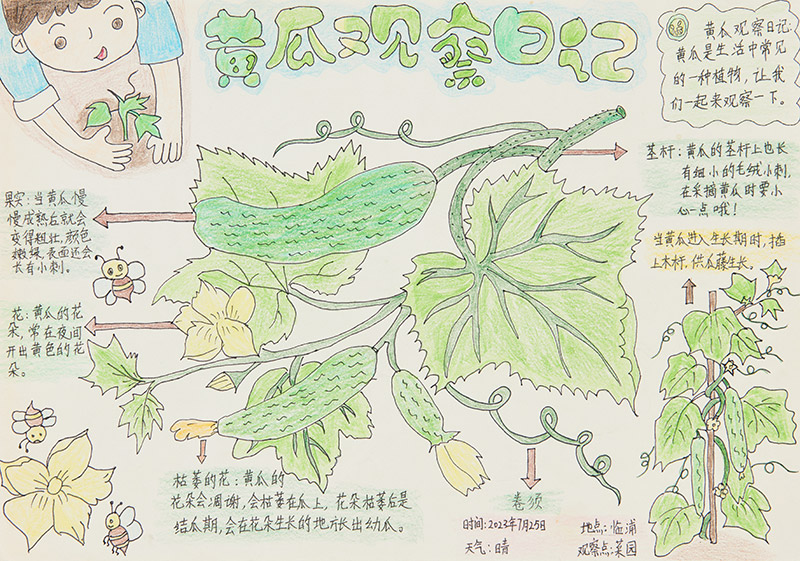 黄瓜观察日记
黄瓜观察日记:
黄瓜是生活中常见
的一种植物，让我
们一起来观察一下。
茎杆：黄瓜的茎杆上也长
有细小的毛绒小刺，
在采摘黄瓜时要小
心一点哦！
当黄瓜进入生长期时，插
上木杆，供瓜藤生长。
果实：当黄瓜慢
慢成熟后就会
变得粗壮，颜色
嫩绿，表面还会
长有小刺。
花：黄瓜的花
朵，常在夜间
开出黄色的花
朵。
枯萎的花：黄瓜的
花朵会凋谢，会枯萎在瓜上，花朵枯萎后是
结瓜期，会在花朵生长的地方长出幼瓜。
卷须
时间：2023年7月25日
天气：晴
地点：临浦
观察点：菜园